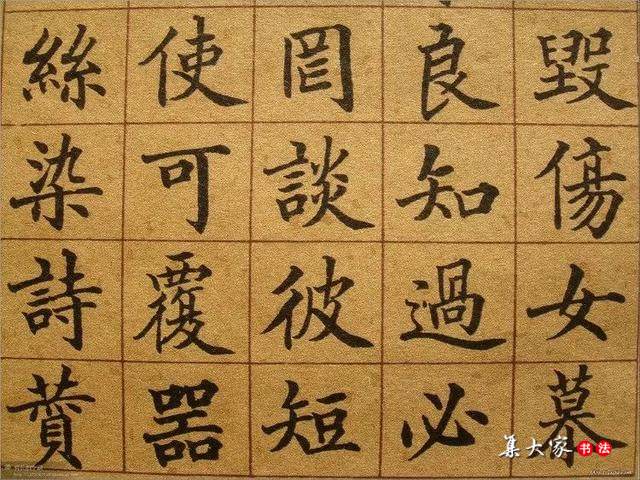 毀傷女慕
良知過必
罔談彼短
使可覆器
絲染詩賛
集大家书法